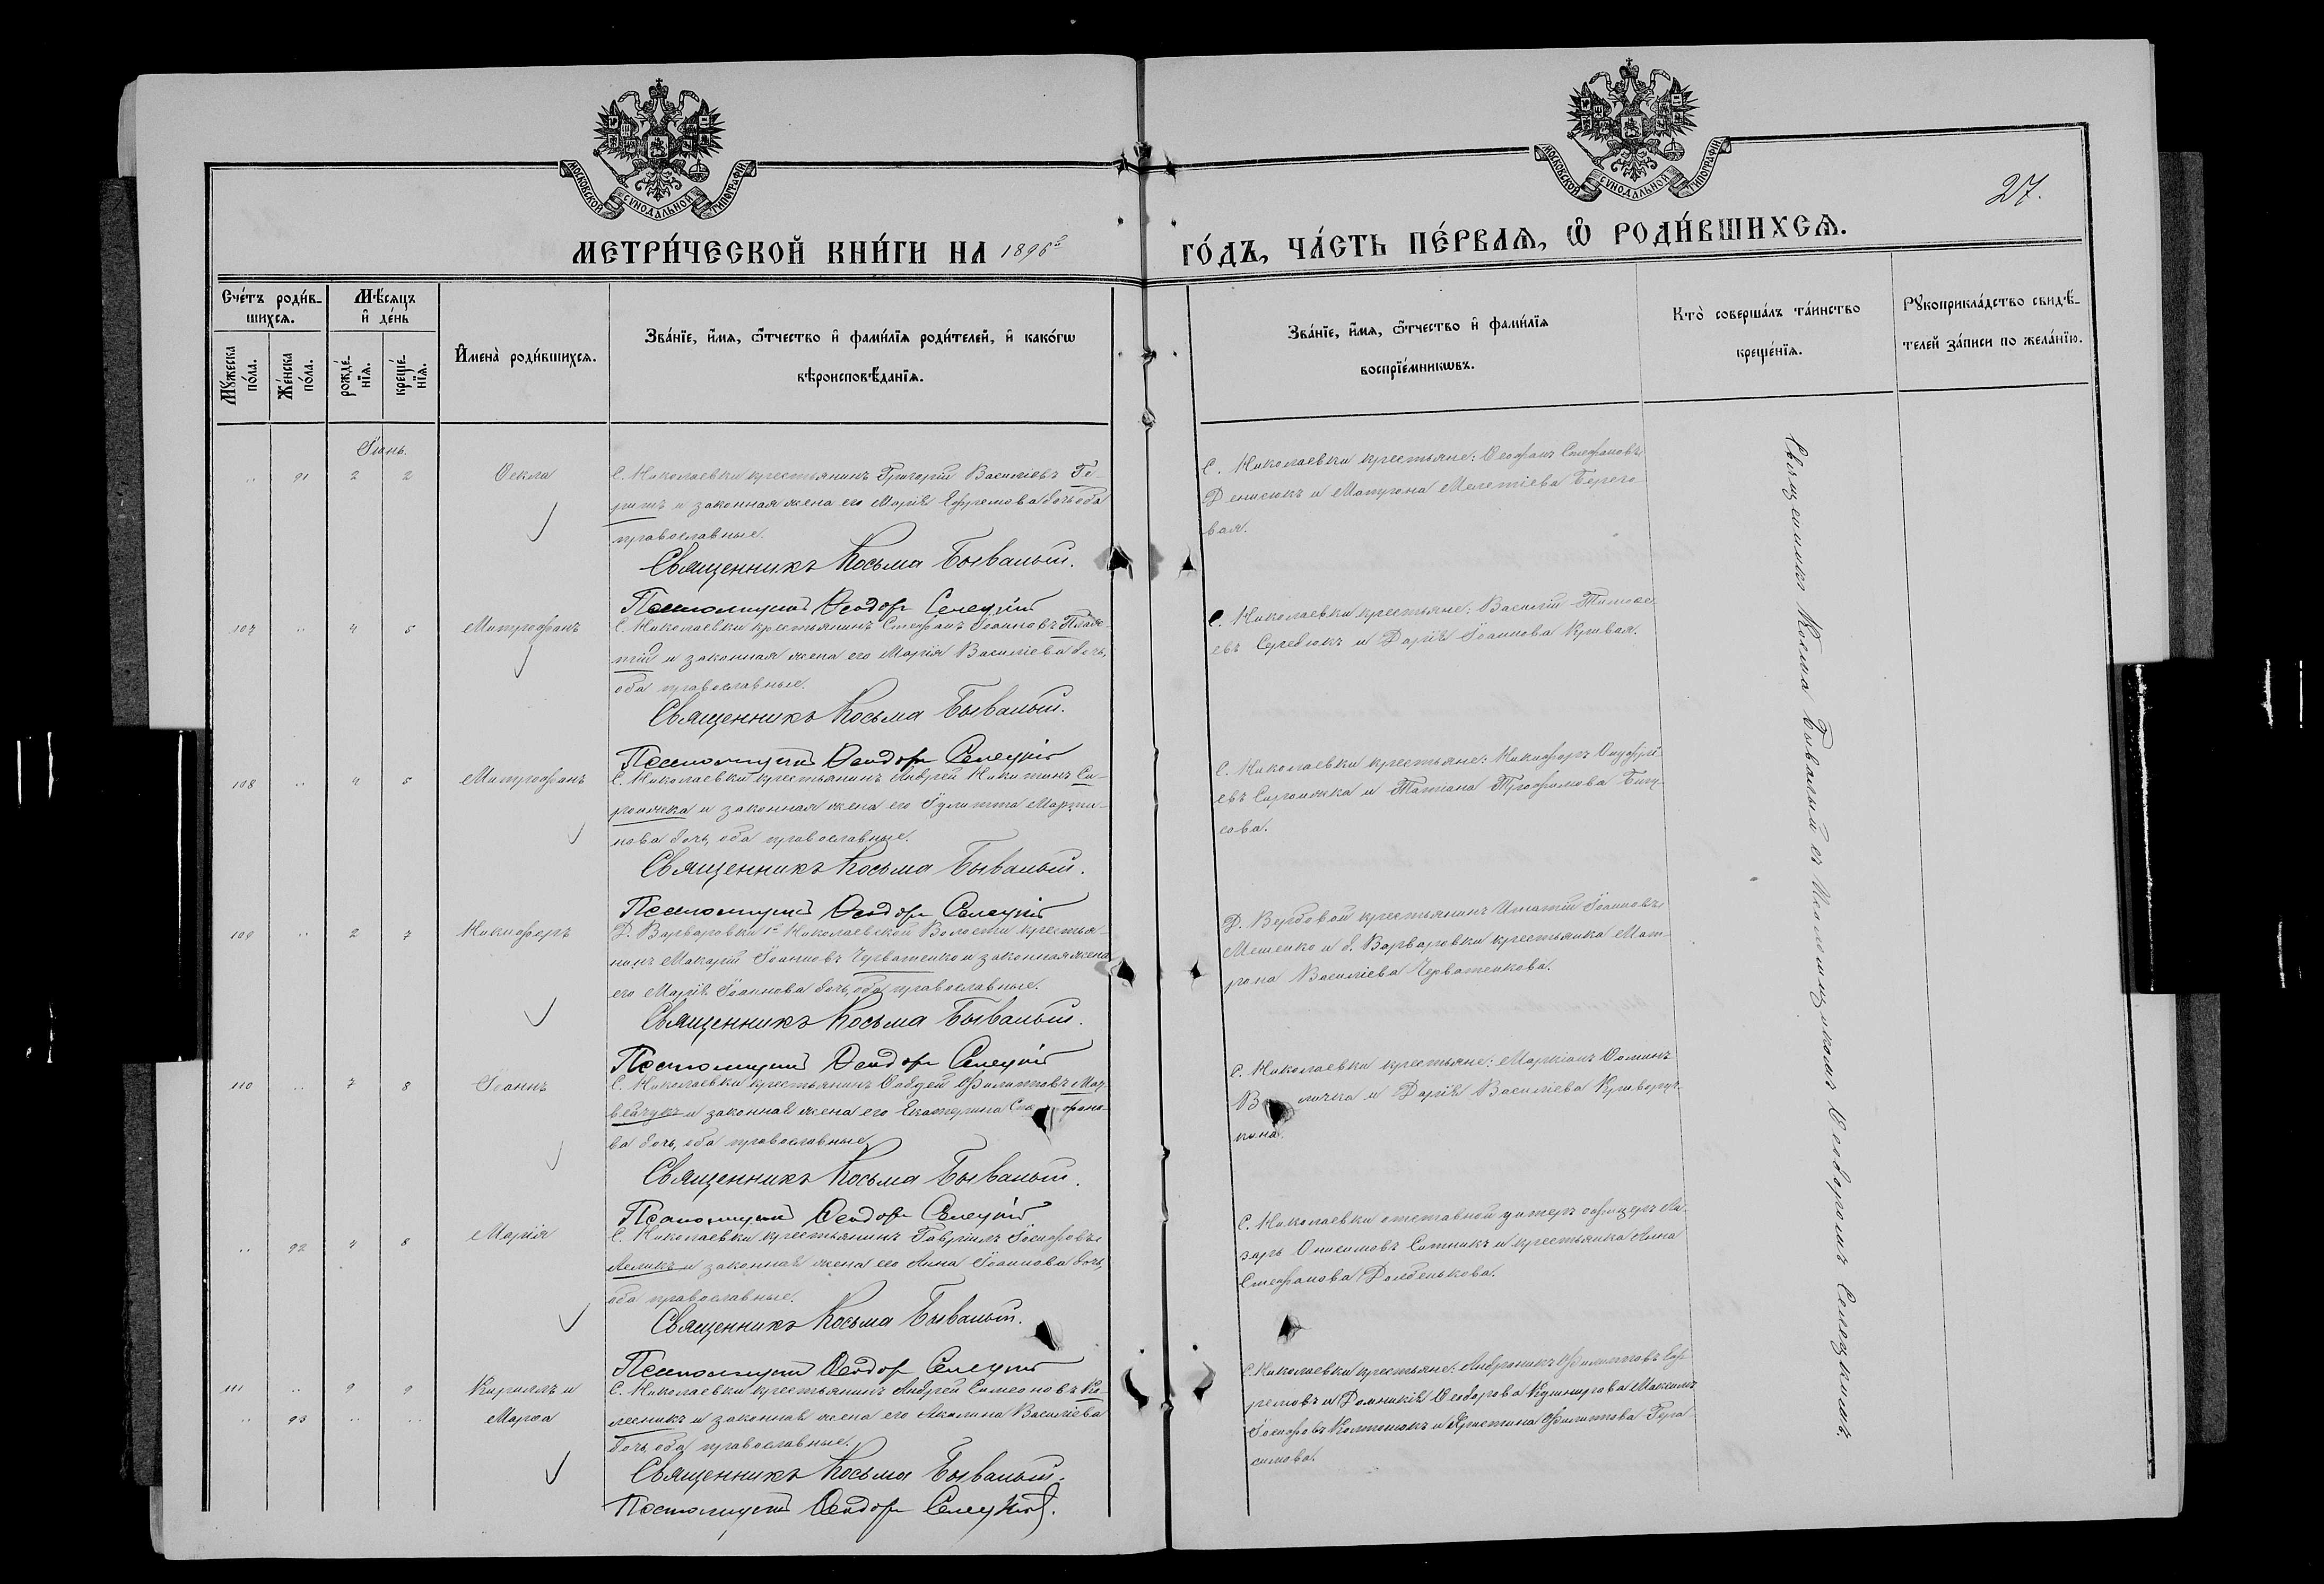 МОСКОВСКОЙ СѴНОДАЛЬНОЙ ТИПОГРАФІИ
МОСКОВСКОЙ СѴНОДАЛЬНОЙ ТИПОГРАФІИ
27.
МЕТРИ́ЧЕСКОЙ КНИ́ГИ НА 1896й ГО́ДЪ, ЧА́СТЬ ПЕ́РВАѦ, Ѽ РОДИ́ВШИХСѦ.
Сче́тъ роди́в-
шихсѧ.
Мꙋжеска по́ла.
Же́нска по́ла.
Мѣ́сяцъ
и҆ де́нь
рожде́-
нїѧ.
креще́-
нїѧ.
И҆мена̀ роди́вшихсѧ.
Зва́нїе, и҆́мѧ, ѻ҆́тчество и҆ фами́лїѧ роди́телей, и҆ како́гѡ
вѣроисповѣ́данїѧ.
Зва́нїе, и҆́мѧ, ѻ҆́тчество и҆ фами́лїѧ
воспрїе́мникѡвъ.
Кто̀ соверша́лъ та́инство
креще́нїѧ.
Рꙋкоприкла́дство свидѣ́-
телей за́писи по жела́нїю.
Іюнь.
.. 91 2 2 Ѳекла
С. Николаевки крестьянинъ Григорій Василіевъ Ге-
ритъ и законная жена его Марія Ефремова дочь оба
православные.
Священникъ Косьма Бывалый.
Псаломщикъ Ѳеодоръ Селецкій
С. Николаевки крестьяне: Ѳеофанъ Стефановъ
Денисюкъ и Матрона Мелетіева Берего-
вая.
107 .. 4 5 Митрофанъ
С. Николаевки крестьянинъ Стефанъ Іоанновъ
и законная жена его Марія Василіева дочь,
оба православные.
Священникъ Косьма Бывалый.
Псаломщикъ Ѳеодоръ Селецкій
С. Николаевки крестьяне: Василій Тимоѳе-
евъ Середюкъ и Дарія Іоаннова Кривая.
108 .. 4 5 Митрофанъ
С. Николаевки крестьянинъ Андрей Никитинъ Си-
ротжка и законная жена его Іулитта Марти-
нова дочь, оба православные.
Священникъ Косьма Бывалый.
Псаломщикъ Ѳеодоръ Селецкій
С. Николаевки крестьяне: Никифоръ Онуфрі-
евъ и Татіана Трофимова
сова.
109 .. 2 7 Никифоръ
Д. Варваровки 1й Николаевской Волости крестья-
нинъ Макарій Іоанновъ Черватенко и законная жена
его Марія Іоаннова дочь, оба православные.
Священникъ Косьма Бывалый.
Псаломщикъ Ѳеодоръ Селецкій
Д. Вербовой крестьянинъ Игнатій Іоанновъ
Мешенко и д. Варваровки крестьянка Мат-
рона Василіева Черватенкова.
110 .. 7 8 Іоаннъ
С. Николаевки крестьянинъ Ѳаддей Филипповъ Мат-
вейчукъ и законная жена его Екатерина
ва дочь, оба православные.
Священникъ Косьма Бывалый.
Псаломщикъ Ѳеодоръ Селецкій
С. Николаевки крестьяне: Маркіанъ Ѳоминъ
и Дарія Василіева Криворуч-
кина.
.. 92 4 8 Марія
С. Николаевки крестьянинъ Гавріилъ Іосифовъ
Меликъ и законная жена его Анна Іоаннова дочь,
оба православные.
Священникъ Косьма Бывалый.
Псаломщикъ Ѳеодоръ Селецкій
С. Николаевки отставной унтеръ офицеръ Ла-
зарь Онисимовъ Ситникъ и крестьянка Анна
Стефанова Долбенькова.
111 .. 9 9 Кириллъ и
.. 93 .. .. Марѳа
С. Николаевки крестьянинъ Андрей Симеоновъ Ко-
лесникъ и законная жена его Акилина Василіева
дочь, оба православные.
Священникъ Косьма Бывалый.
Псаломщикъ Ѳеодоръ Селецкій.
С. Николаевки крестьяне: Андроникъ Филипповъ Еф-
ремовъ и Домникія Ѳеодорова Кушнирова Максимъ
Іосифовъ Колтонюкъ и Христина Филиппова Гера-
симова.
Священникъ Косьма Бывалый съ псаломщикомъ Ѳеодоромъ Селецкимъ.